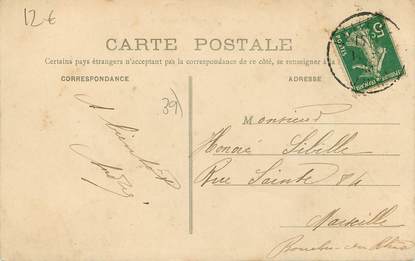 12€
CARTE POSTALE
Certains pays étrangers n'acceptant pas la correspondance de ce côté, se renseigner à la
CORRESPONDANCE
ADRESSE
5c
39
A bientôt
Monsieur
Honoré Sibille
Rue Sainte 84
Marseille
Bouches-du-Rhône